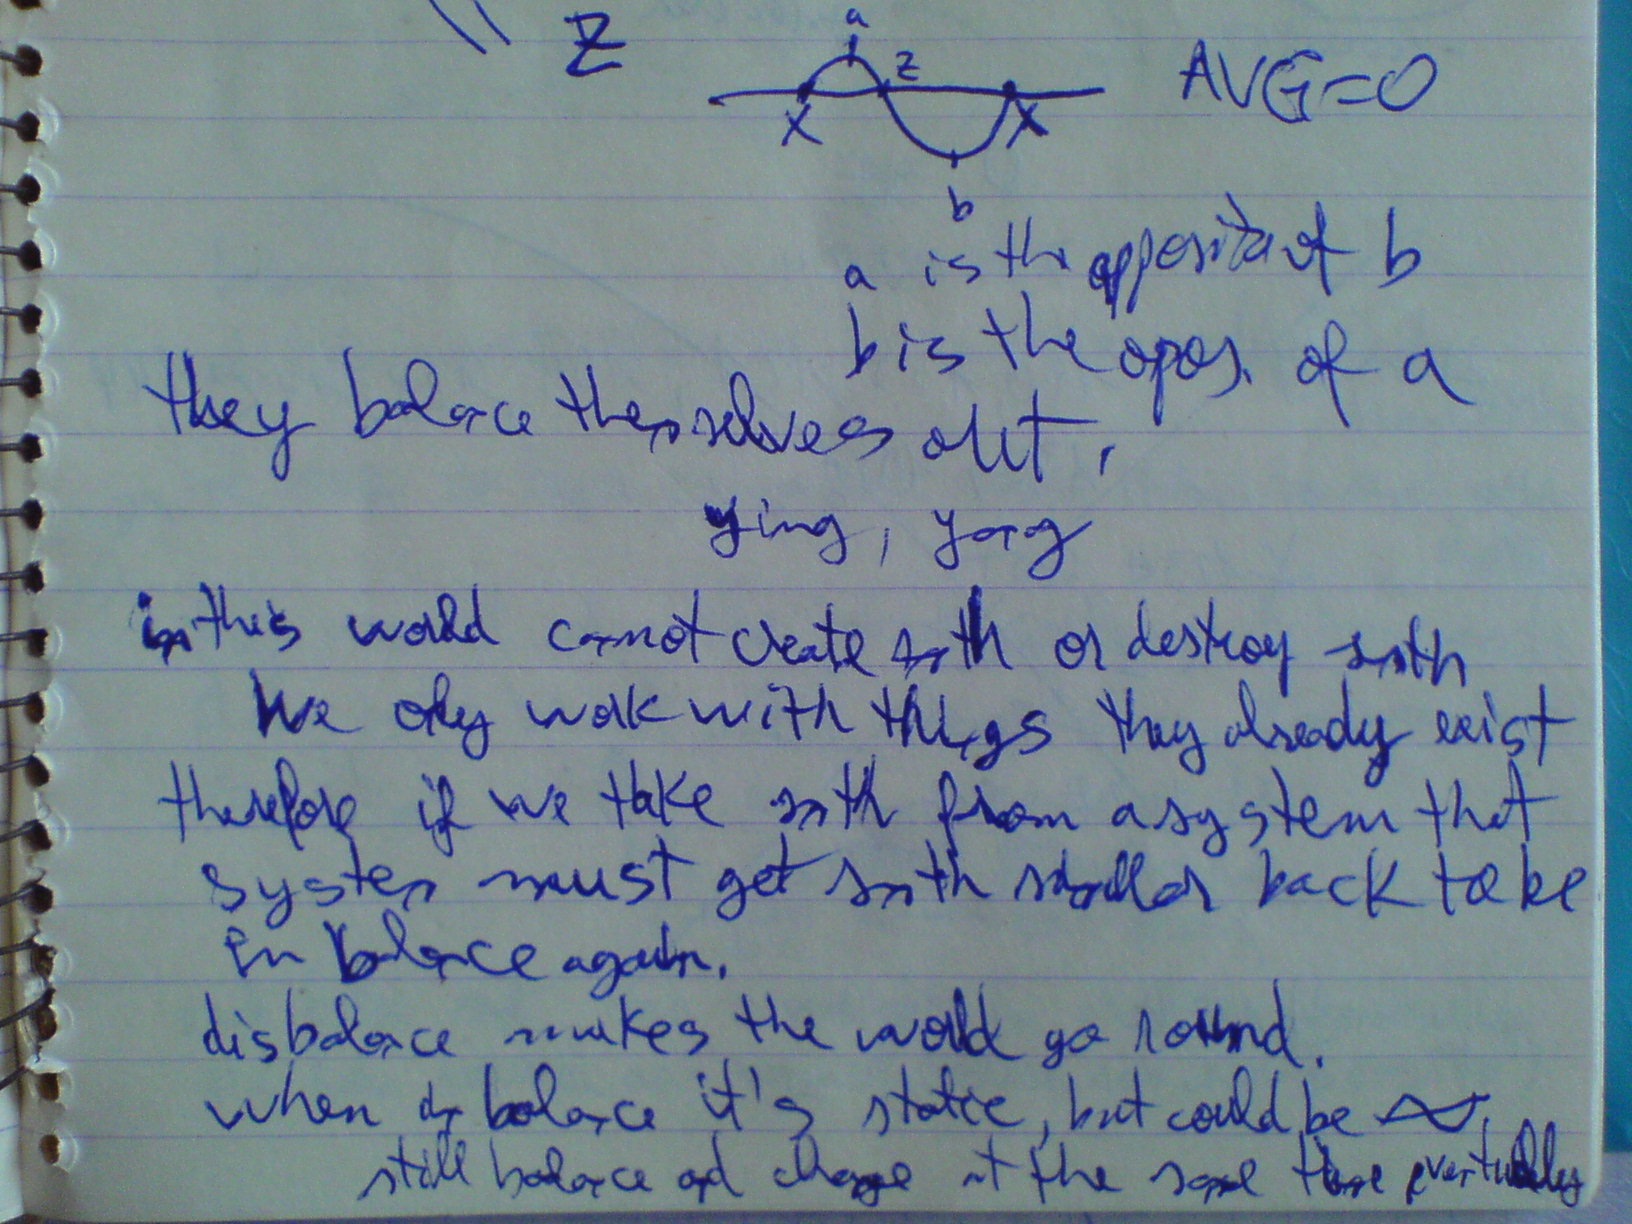 a
Z
z
AVG=0
X
X
b
a is the opposite of b
b is the opos. of a
they balance themselves out,
ying, yang
in this world cannot create smth or destroy smth
We only work with things they already exist
therefore if we take smth from a system that
system must get smth similar back to be
in balance again.
disbalance makes the world go round.
when in balance it's static, but could be ~,
still balance and change at the same time eventually